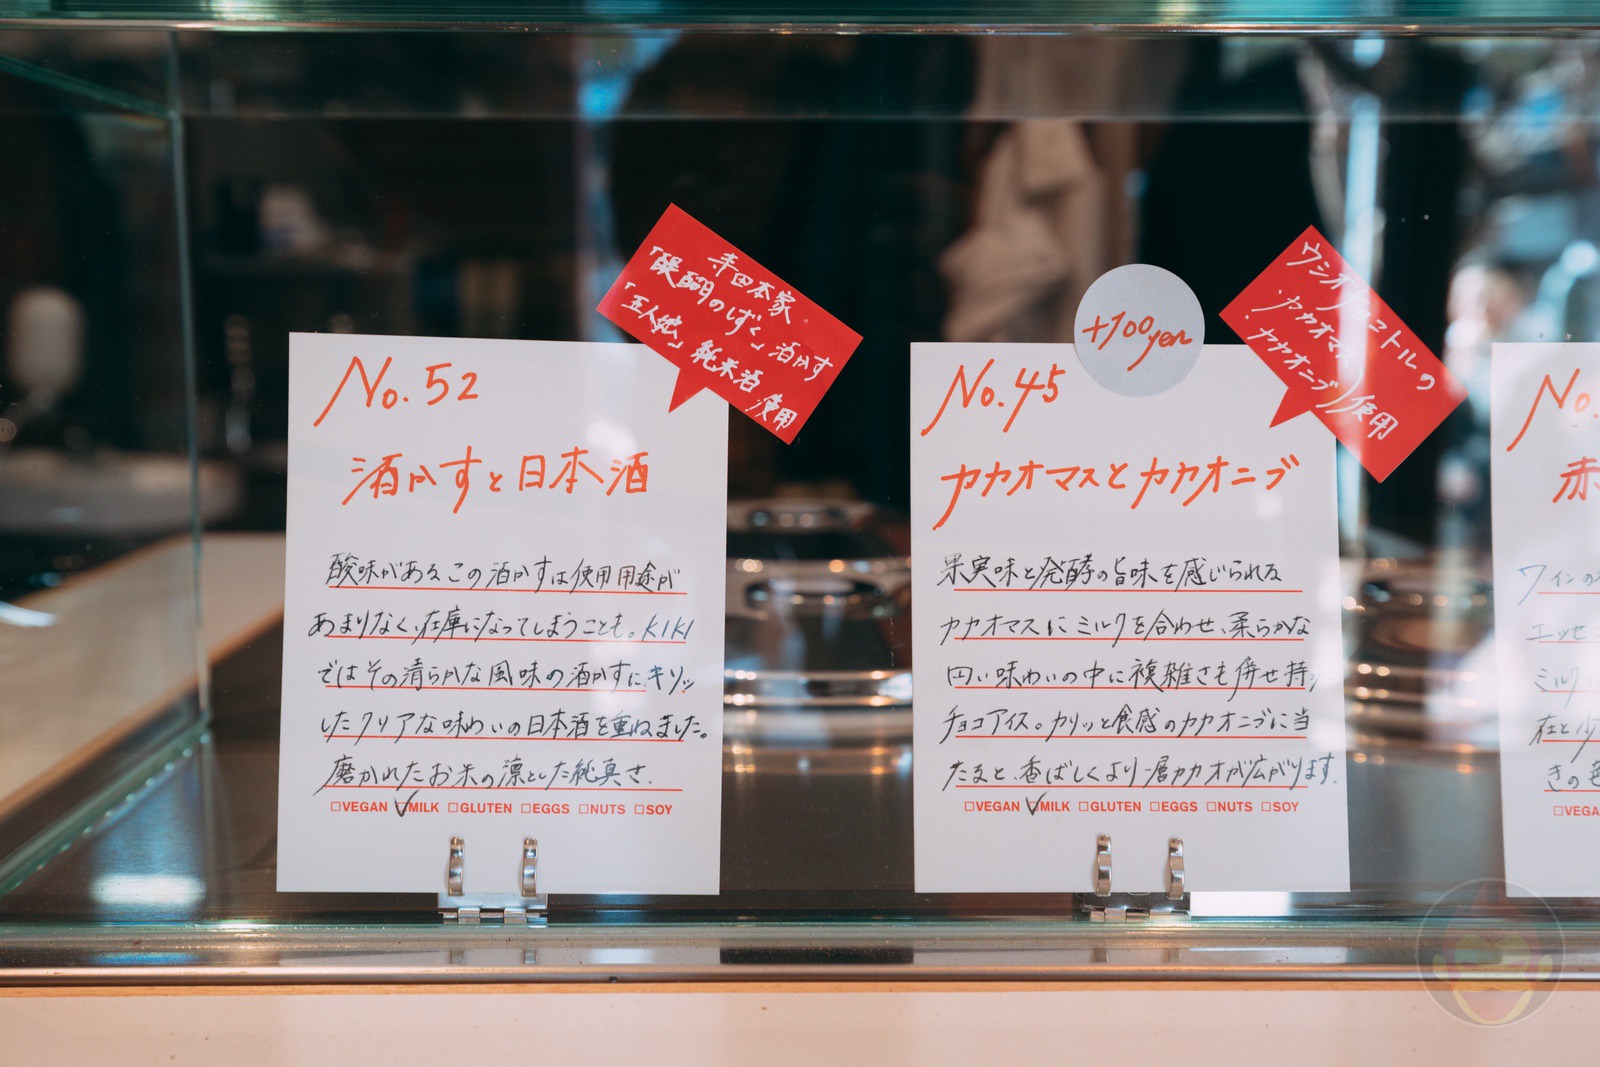 寺田本家
「醍醐のしずく」酒かす
「五人娘」純米酒 使用
No.52
酒かすと日本酒
酸味があるこの酒かすは使用用途が
あまりなく、在庫になってしまうことも。KIKI
ではその清らかな風味の酒かすにキリッと
したクリアな味わいの日本酒を重ねました。
磨かれたお米の凛とした純真さ。
□VEGAN □MILK □GLUTEN □EGGS □NUTS □SOY
+100yen
ウシオチョコラトルの
・カカオマス
・カカオニブ 使用
No.45
カカオマスとカカオニブ
果実味と発酵の旨味を感じられる
カカオマスにミルクを合わせ、柔らかな
円い味わいの中に複雑さも併せ持つ
チョコアイス。カリッと食感のカカオニブに当
たると、香ばしくより一層カカオが広がります。
□VEGAN □MILK □GLUTEN □EGGS □NUTS □SOY
No.
赤
ワインの
エッセン
ミルク
在と少
きの色
□VEGA